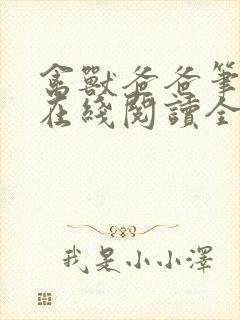 禽獸爸爸筆
在綫閱讀全
我是小小澤